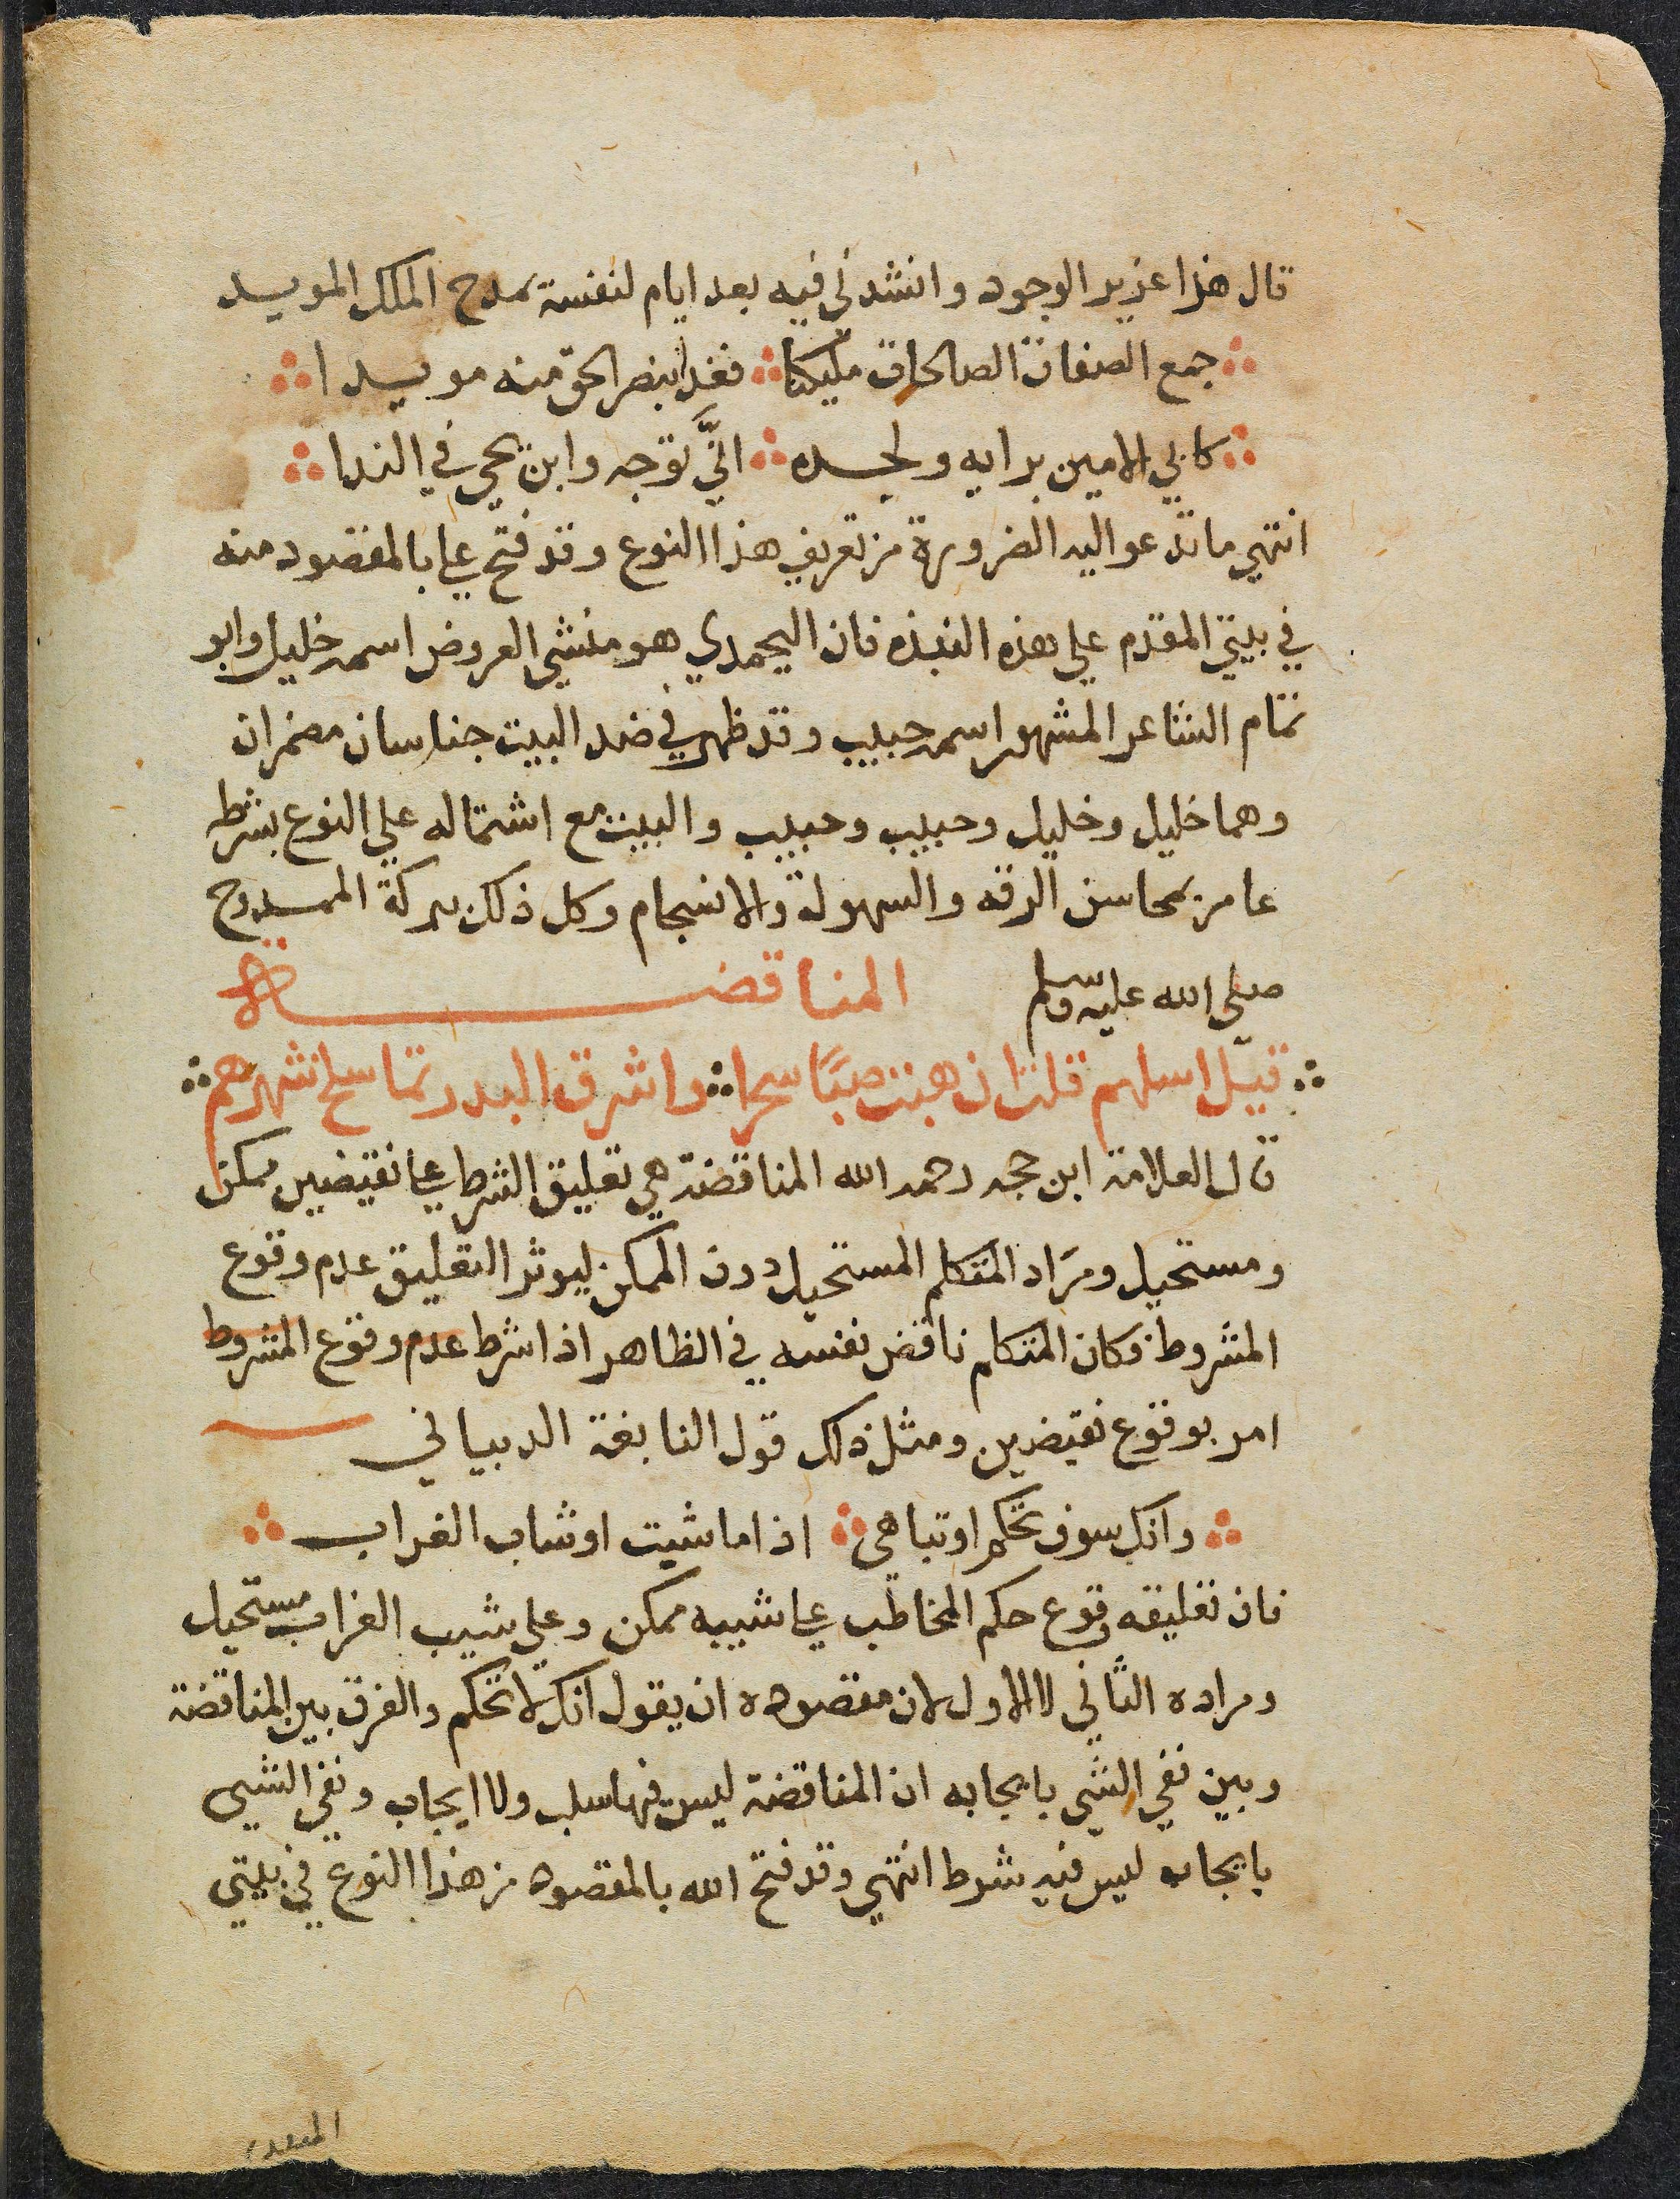 قال هذا عزيز الوجود وانشدني فيه بعد ايام لنفسة يمدح الملك المويد
جمع الصفات الصالحات مليكنا فغدا بنصر الحق منه مويدا
كابي الامين برايه ولجده انّي توجه وابن يحي في الندا
انتهي ما تدعو اليه الضرورة من تعريف هذا النوع وقد فتح علي بالمقصود منه
في بيتي المقدم علي هذه النبذه فان اليحمدي هو منشي العروض اسمه خليل وابو
تمام الشاعر المشهور اسمه حبيب وقد ظهر في ضد البيت جناسان مضمران
وهما خليل وخليل وحبيب وحبيب والبيت مع اشتماله علي النوع بشرطه
عامر بمحاسن الرقه والسهولة والانسجام وكل ذلك ببركة الممدوح
صلي الله عليه وسلم المناقضة
قيل اسلهم قلت ان هبت صبًا سحرا واشرق البدر تما سلخ شهرهم
قال العلامة ابن حجه رحمه الله المناقضة هي تعليق الشرط علي نقيضين ممكن
ومستحيل ومراد المتكلم المستحيل دون الممكن ليوثر التعليق عدم وقوع
المشروط فكان المتكلم ناقض نفسه في الظاهر اذا شرط عدم وقوع المشروط
امر بوقوع نقيضين ومثل ذلك قول النابغة الدبياني
وانك سوف تحكم او تباهي اذا ما شيت او شاب الغراب
فان تعليقه وقوع حكم المخاطب علي شيبه ممكن وعلي شيب الغراب مستحيل
ومراده الثاني لا الاول لان مقصوده ان يقول انك لا تحكم والفرق بين المناقضة
وبين نفي الشي بايجابه ان المناقضة ليس فيها سلب ولا ايجاب ونفي الشيي
بايجابه ليس فيه شرط انتهي وقد فتح الله بالمقصود من هذا النوع في بيتي